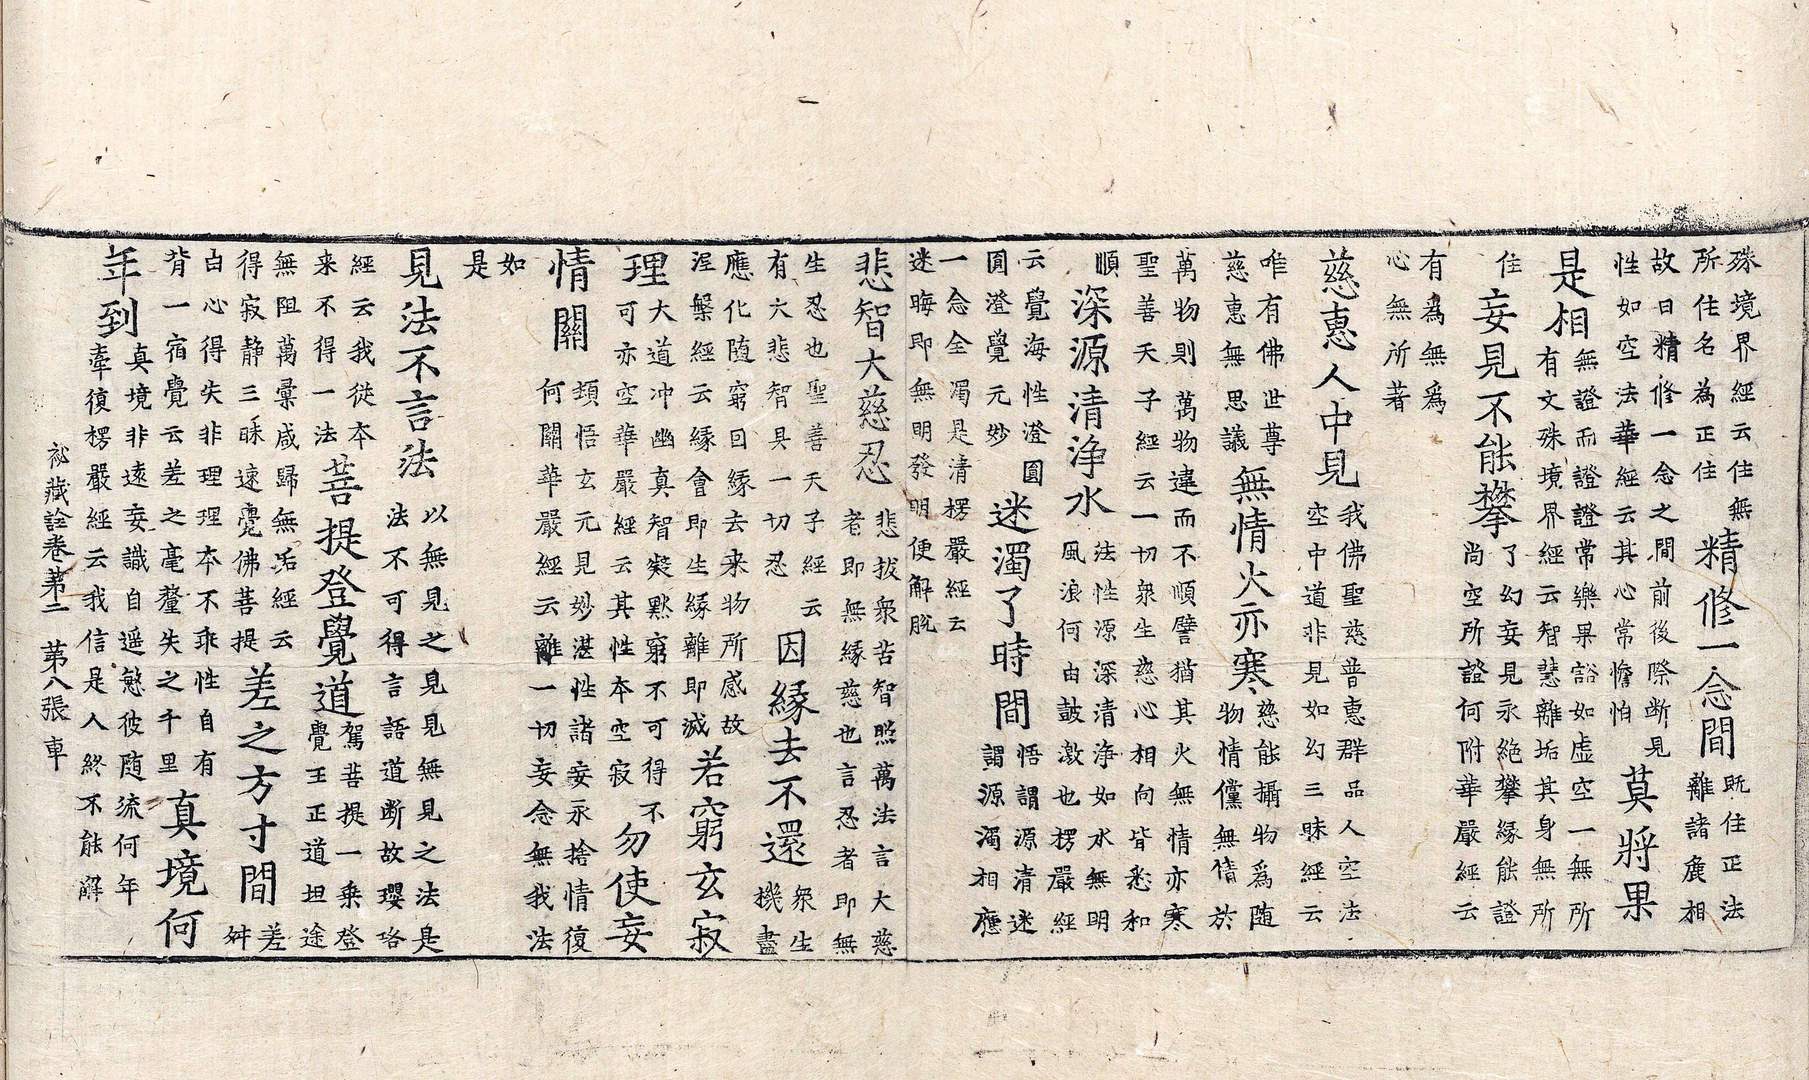 殊境界經云住無
所住名為正住
精修一念間
既住正法
離諸廣相
故曰精修一念之間前後際断見
性如空法華經云其心常憺怕
莫將果
是相
無證而證證常樂果豁如虚空一無所
有文殊境界經云智慧離垢其身無所
住
妄見不能攀
了幻妄見永絶攀緣能證
尚空所證何附華嚴經云
有爲無爲
心無所著
慈惠人中見
我佛聖慈普惠群品人空法
空中道非見如幻三昧經云
唯有佛世尊
慈惠無思議
無情火亦寒
慈能攝物爲随
物情儻無情於
萬物則萬物違而不順譬猶其火無情亦寒
聖善天子經云一切衆生慈心相向皆悉和
順
深源清浄水
法性源深清浄如水無明
風浪何由鼓激也楞嚴經
云覺海性澄圓
圓澄覺元妙
迷濁了時間
悟謂源清迷
謂源濁相應
一念全濁是清楞嚴經云
迷晦即無明發明便解脱
悲智大慈忍
悲拔衆苦智照萬法言大慈
者即無緣慈也言忍者即無
生忍也聖善天子經云
有六悲智具一切忍
因緣去不還
衆生
機盡
應化随窮曰緣去来物所感故
涅槃經云緣會即生緣離即滅
若窮玄寂
理
大道冲幽真智凝默窮不可得不
可亦空華嚴經云其性本空寂
勿使妄
情關
悟玄元見妙湛性諸妄永捨情復
何關華嚴經云離一切妄念無我法
如
是
見法不言法
以無見之見見無見之法是
法不可得言語道断故瓔珞
經云我從本
来不得一法
菩提登覺道
駕菩提一乗登
覺王正道坦途
無阻萬彙咸歸無經云
得寂静三昧速覺佛菩提
差之方寸間
差
舛
白心得失非理理本不乖性自有
背一宿覺云差之毫釐失之千里
真境何
年到
真境非遠妄識自遥慜彼随流何年
牽復楞嚴經云我信是人終不能解
祕藏詮卷第二 第八張 車